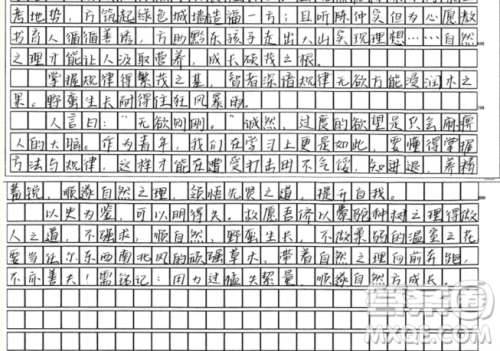 考地势，方筑起绿色城墙造福一方；且听陈仲笑但为心愿熬
书育人循循善诱，方助黔东孩子走出大山实现理想……自然
之理才能让人汲取营养，成长硕茂之根。
掌握规律得繁茂之基，智者深谙规律无欲方能受润木之
果。野蛮生长耐得住狂风暴雨。
人言曰："无欲则刚。"诚然，过度的欲望是只会麻痹
人的大脑。作为青年，我们在学习上更是如此，要懂得掌握
方法与规律，这样才能在遭受打击时不气馁，知进退，养精
蓄锐，顺遂自然之理，领悟先贤之道，提升自我。
以史为鉴，可以明得失。故愿吾侪以橐驼种树之理得做
人之道，不强求，顺自然，野蛮生长，不做柔弱的温室之花
要当任尔东西南北风的顽强草木。带着自然之理向前奔跑，
不亦善夫！需铭记：用力过猛失掣量，顺遂自然方成长。
答案圈